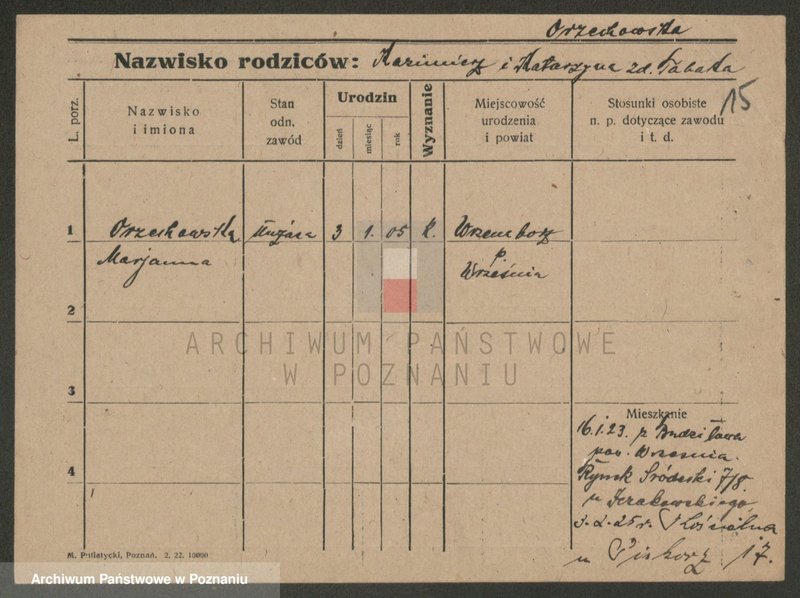 Orzechowska
Nazwisko rodziców: Kazimierz i Katarzyna zd. Tabaka
15
L. porz.
Nazwisko
i imiona
Stan
odn.
zawód
Urodzin
dzień
miesiąc
rok
Wyznanie
Miejscowość
urodzenia
i powiat
Stosunki osobiste
n. p. dotyczące zawodu
i t. d.
1
Orzechowska
Marjanna
służąca
3
1.
05
k.
Wrzemborz
p.
Września
2
3
4
ARCHIWUM PAŃSTWOWE
W POZNANIU
Mieszkanie
16.1.23. z Budziłowa
pow. Wrzesnia.
Rynek Śródecki 7/8
u
3-2-25 r. Kościelna
u Piskorz 17.
M. Putiatycki, Poznań. 2, 22. 10000
Archiwum Państwowe w Poznaniu